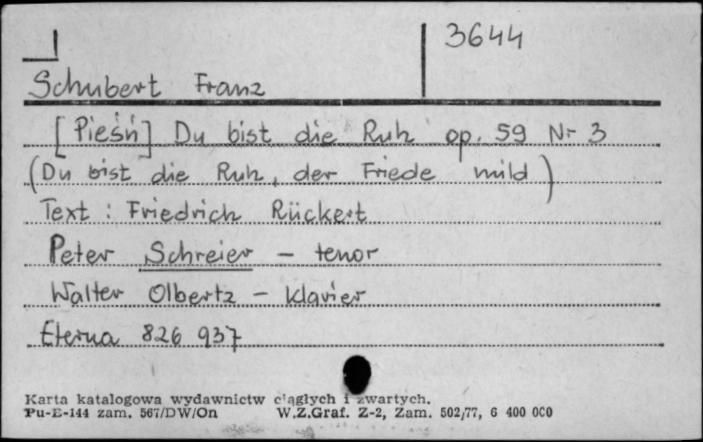 3644
Schubert Franz
[Pieśń] Du bist die Ruh op. 59 Nr 3
(Du bist die Ruh, der Friede mild)
Text : Friedrich Rückert
Peter Schreier – tenor
Walter Olbertz – Klavier
Eterna 826 937
Karta katalogowa wydawnictw ciągłych i zwartych.
Pu-E-144 zam. 567/DW/On W.Z.Graf. Z-2, Zam. 502/77, 6 400 000